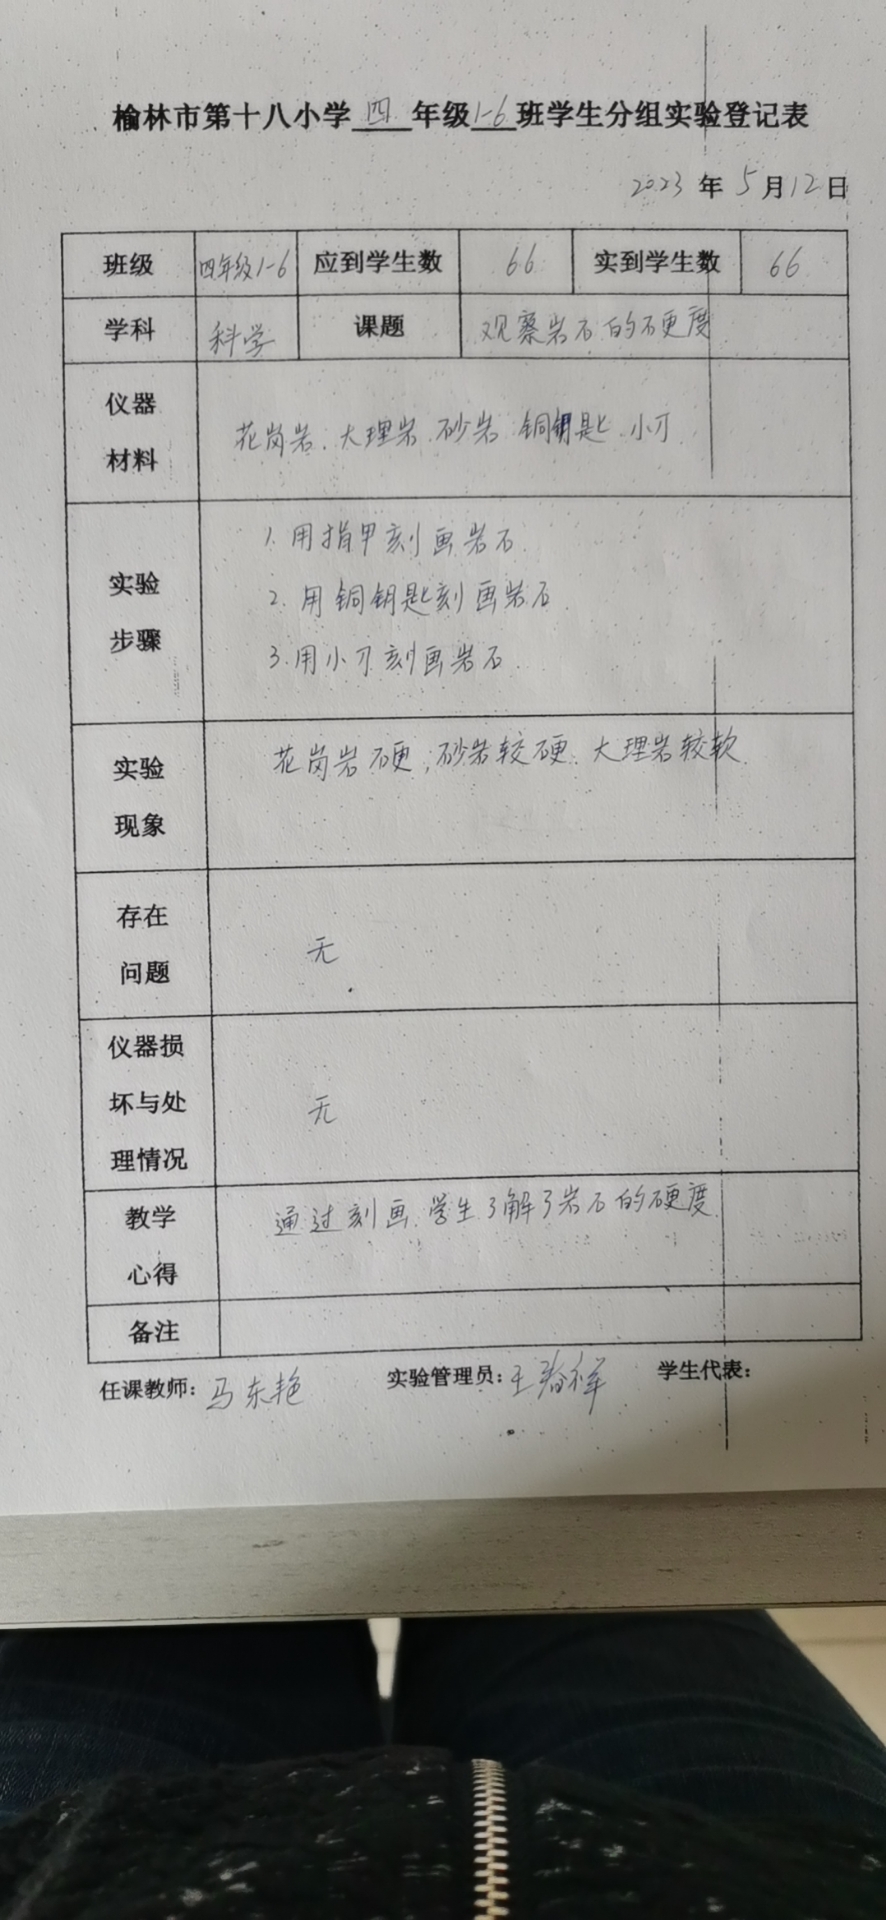 榆林市第十八小学四年级1-6班学生分组实验登记表
2023年5月12日
班级 四年级1-6 应到学生数 66 实到学生数 66
学科 科学 课题 观察岩石的硬度
仪器
材料
花岗岩、大理岩、砂岩、铜钥匙、小刀
实验
步骤
1. 用指甲刻画岩石.
2. 用铜钥匙刻画岩石.
3. 用小刀刻画岩石.
实验
现象
花岗岩硬,砂岩较硬、大理岩较软.
存在
问题
无
仪器损
坏与处
理情况
无
教学
心得
通过刻画,学生了解了岩石的硬度.
备注
任课教师:马东艳 实验管理员:王 学生代表: